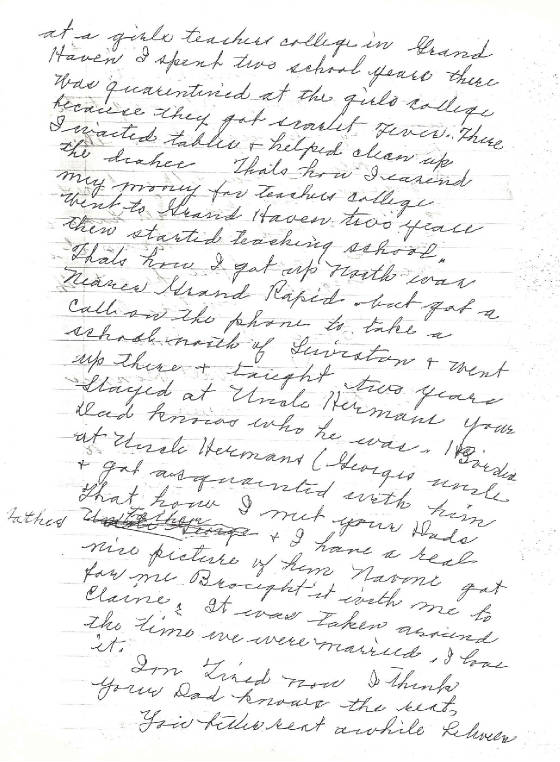 at a girls teachers college in Grand
Haven I spent two school years there
Was quarentined at the girls college
because they got scarlet Fever. There
I waited tables + helped clean up
the dishes Thats how I earend
my money for teachers college
Went to Grand Haven two years
then started teaching school.
Thats how I got up North was
Nearer Grand Rapid - but got a
call on the phone to take a
school north of Lewiston + went
up there + taight two years
Stayed at Uncle Hermans your
Dad knows who he was. I Borded
at Uncle Hermans (Georges uncle
+ got asquainted with him
That how I met your Dads
father + I have a real
nice picture of him Navone got
for me Brought it with me to
Elaine's It was taken around
the time we were married. I love
it.
Im Tired now I think
your Dad knows the rest,
You better rest awhile between